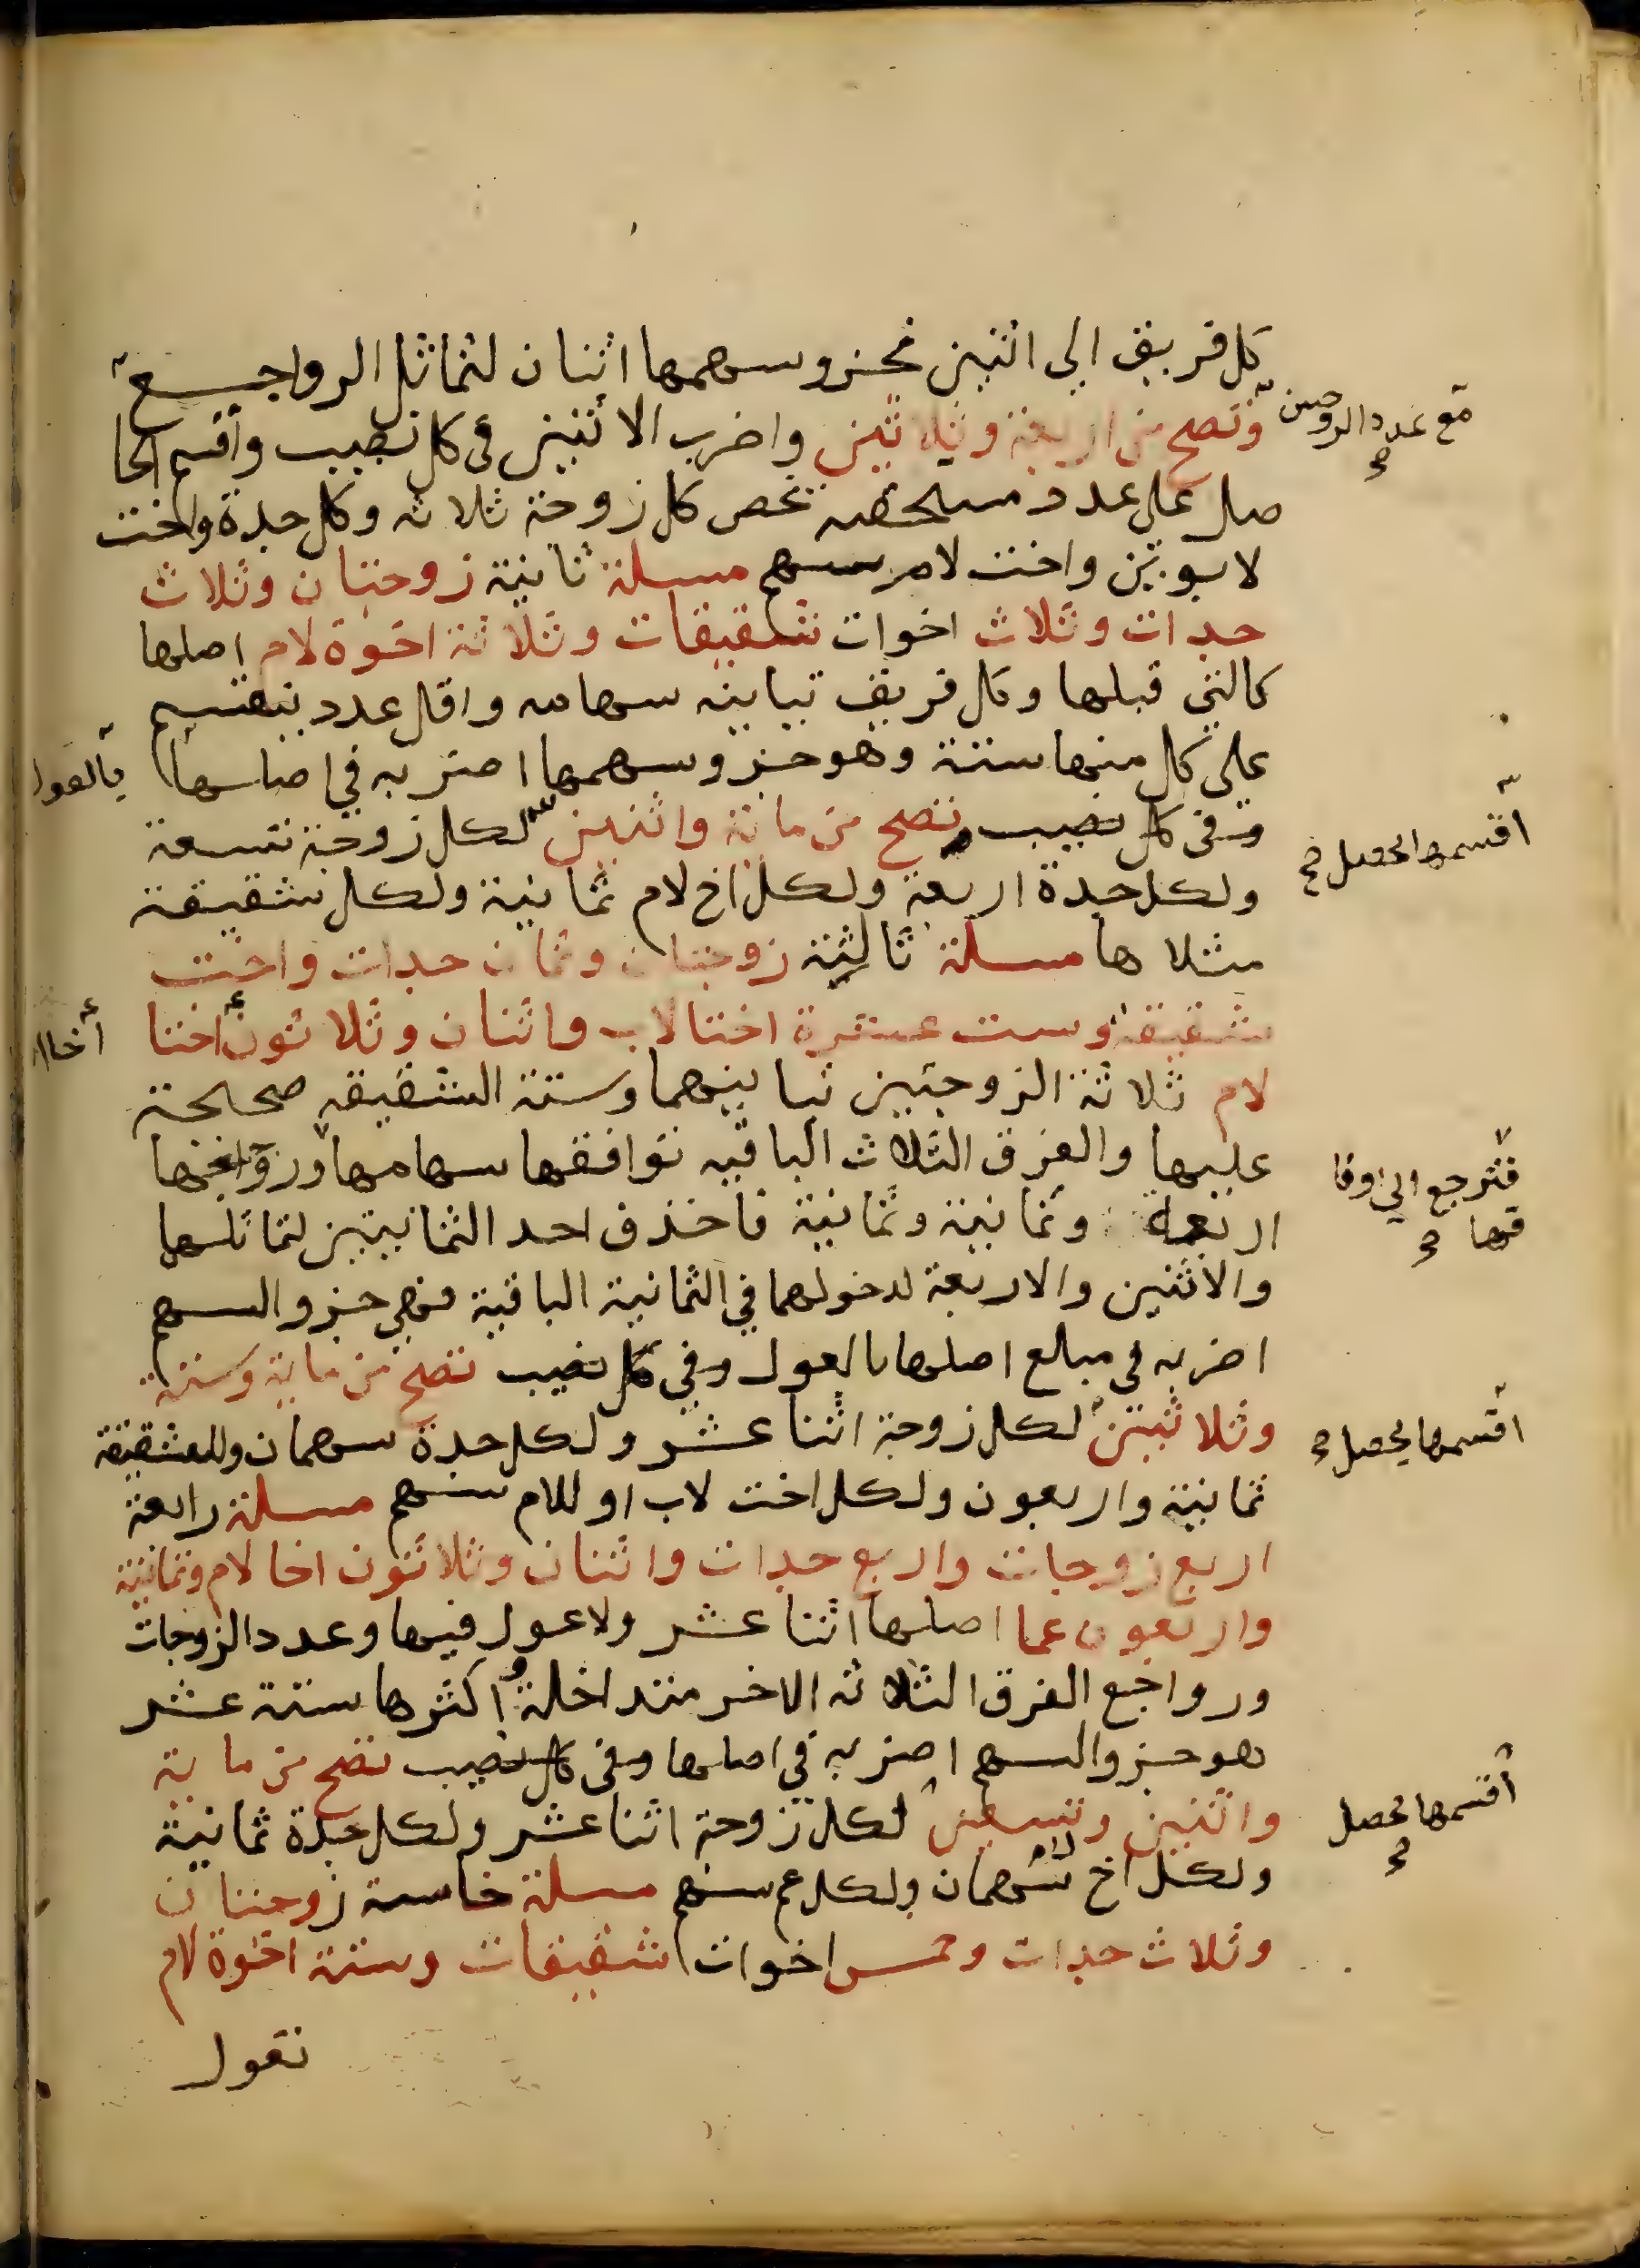 كل فريق الى اثنين فجزو سهمها اثنان لتماثل الرواجع
مع عدد الزوجين صح
وتصح من اربعة وثلاثين واضرب الاثنين فى كل نصيب واقسم الحا
صل على عدد مستحقيه يخص كل زوجة ثلاثه وكل جدة واخت
لابوين واخت لام سهم مسلة ثانية زوجتان وثلاث
جدات وثلاث اخوات شقيقات وثلاثة اخوة لام اصلها
كالتى قبلها وكل فريق تباينه سهامه واقل عدد ينقسم
على كل منها ستة وهو جزو سهمها اضربه في اصلها
بالعول
وفى كل نصيب تصح من مائة واثنين لكل زوجة تسعة
اقسمها يحصل صح
ولكل جدة اربعة ولكل اخ لام ثمانية ولكل شقيقة
مثلاها مسلة ثالثة زوجتان وثمان جدات واخت
شقيقة وست عشرة اختا لاب واثنان وثلاثون اختا
أخا
لام ثلاثة الزوجتين تباينهما وستة الشقيقه صحيحة
عليها والفرق الثلاث الباقيه توافقها سهامها ورواجعها
فترجع الى اوفا
قها صح
اربعة وثمانية وثمانية فاحذف احد الثمانيتين لتماثلها
والاثنين والاربعة لدخولهما في الثمانية الباقية فهي جزو السهم
اضربه في مبلغ اصلها بالعول وفي كل نصيب تصح من ماية وستة
وثلاثين لكل زوجة اثنا عشر ولكل جدة سهمان وللشقيقة
اقسمها يحصل صح
ثمانية واربعون ولكل اخت لاب او للام سهم مسلة رابعة
اربع زوجات واربع جدات واثنان وثلاثون اخا لام وثمانية
واربعون عما اصلها اثنا عشر ولا عول فيها وعدد الزوجات
ورواجع الفرق الثلاثه الاخر متداخلة واكثرها ستة عشر
هو جزو السهم اضربه في اصلها وفى كل نصيب تصح من ماية
واثنين وتسعين لكل زوجة اثنا عشر ولكل جدة ثمانية
اقسمها يحصل صح
ولكل اخ لام سهمان ولكل عم سهم مسلة خامسة زوجتان
وثلاث جدات وخمس اخوات شقيقات وستة اخوة لام
تقول